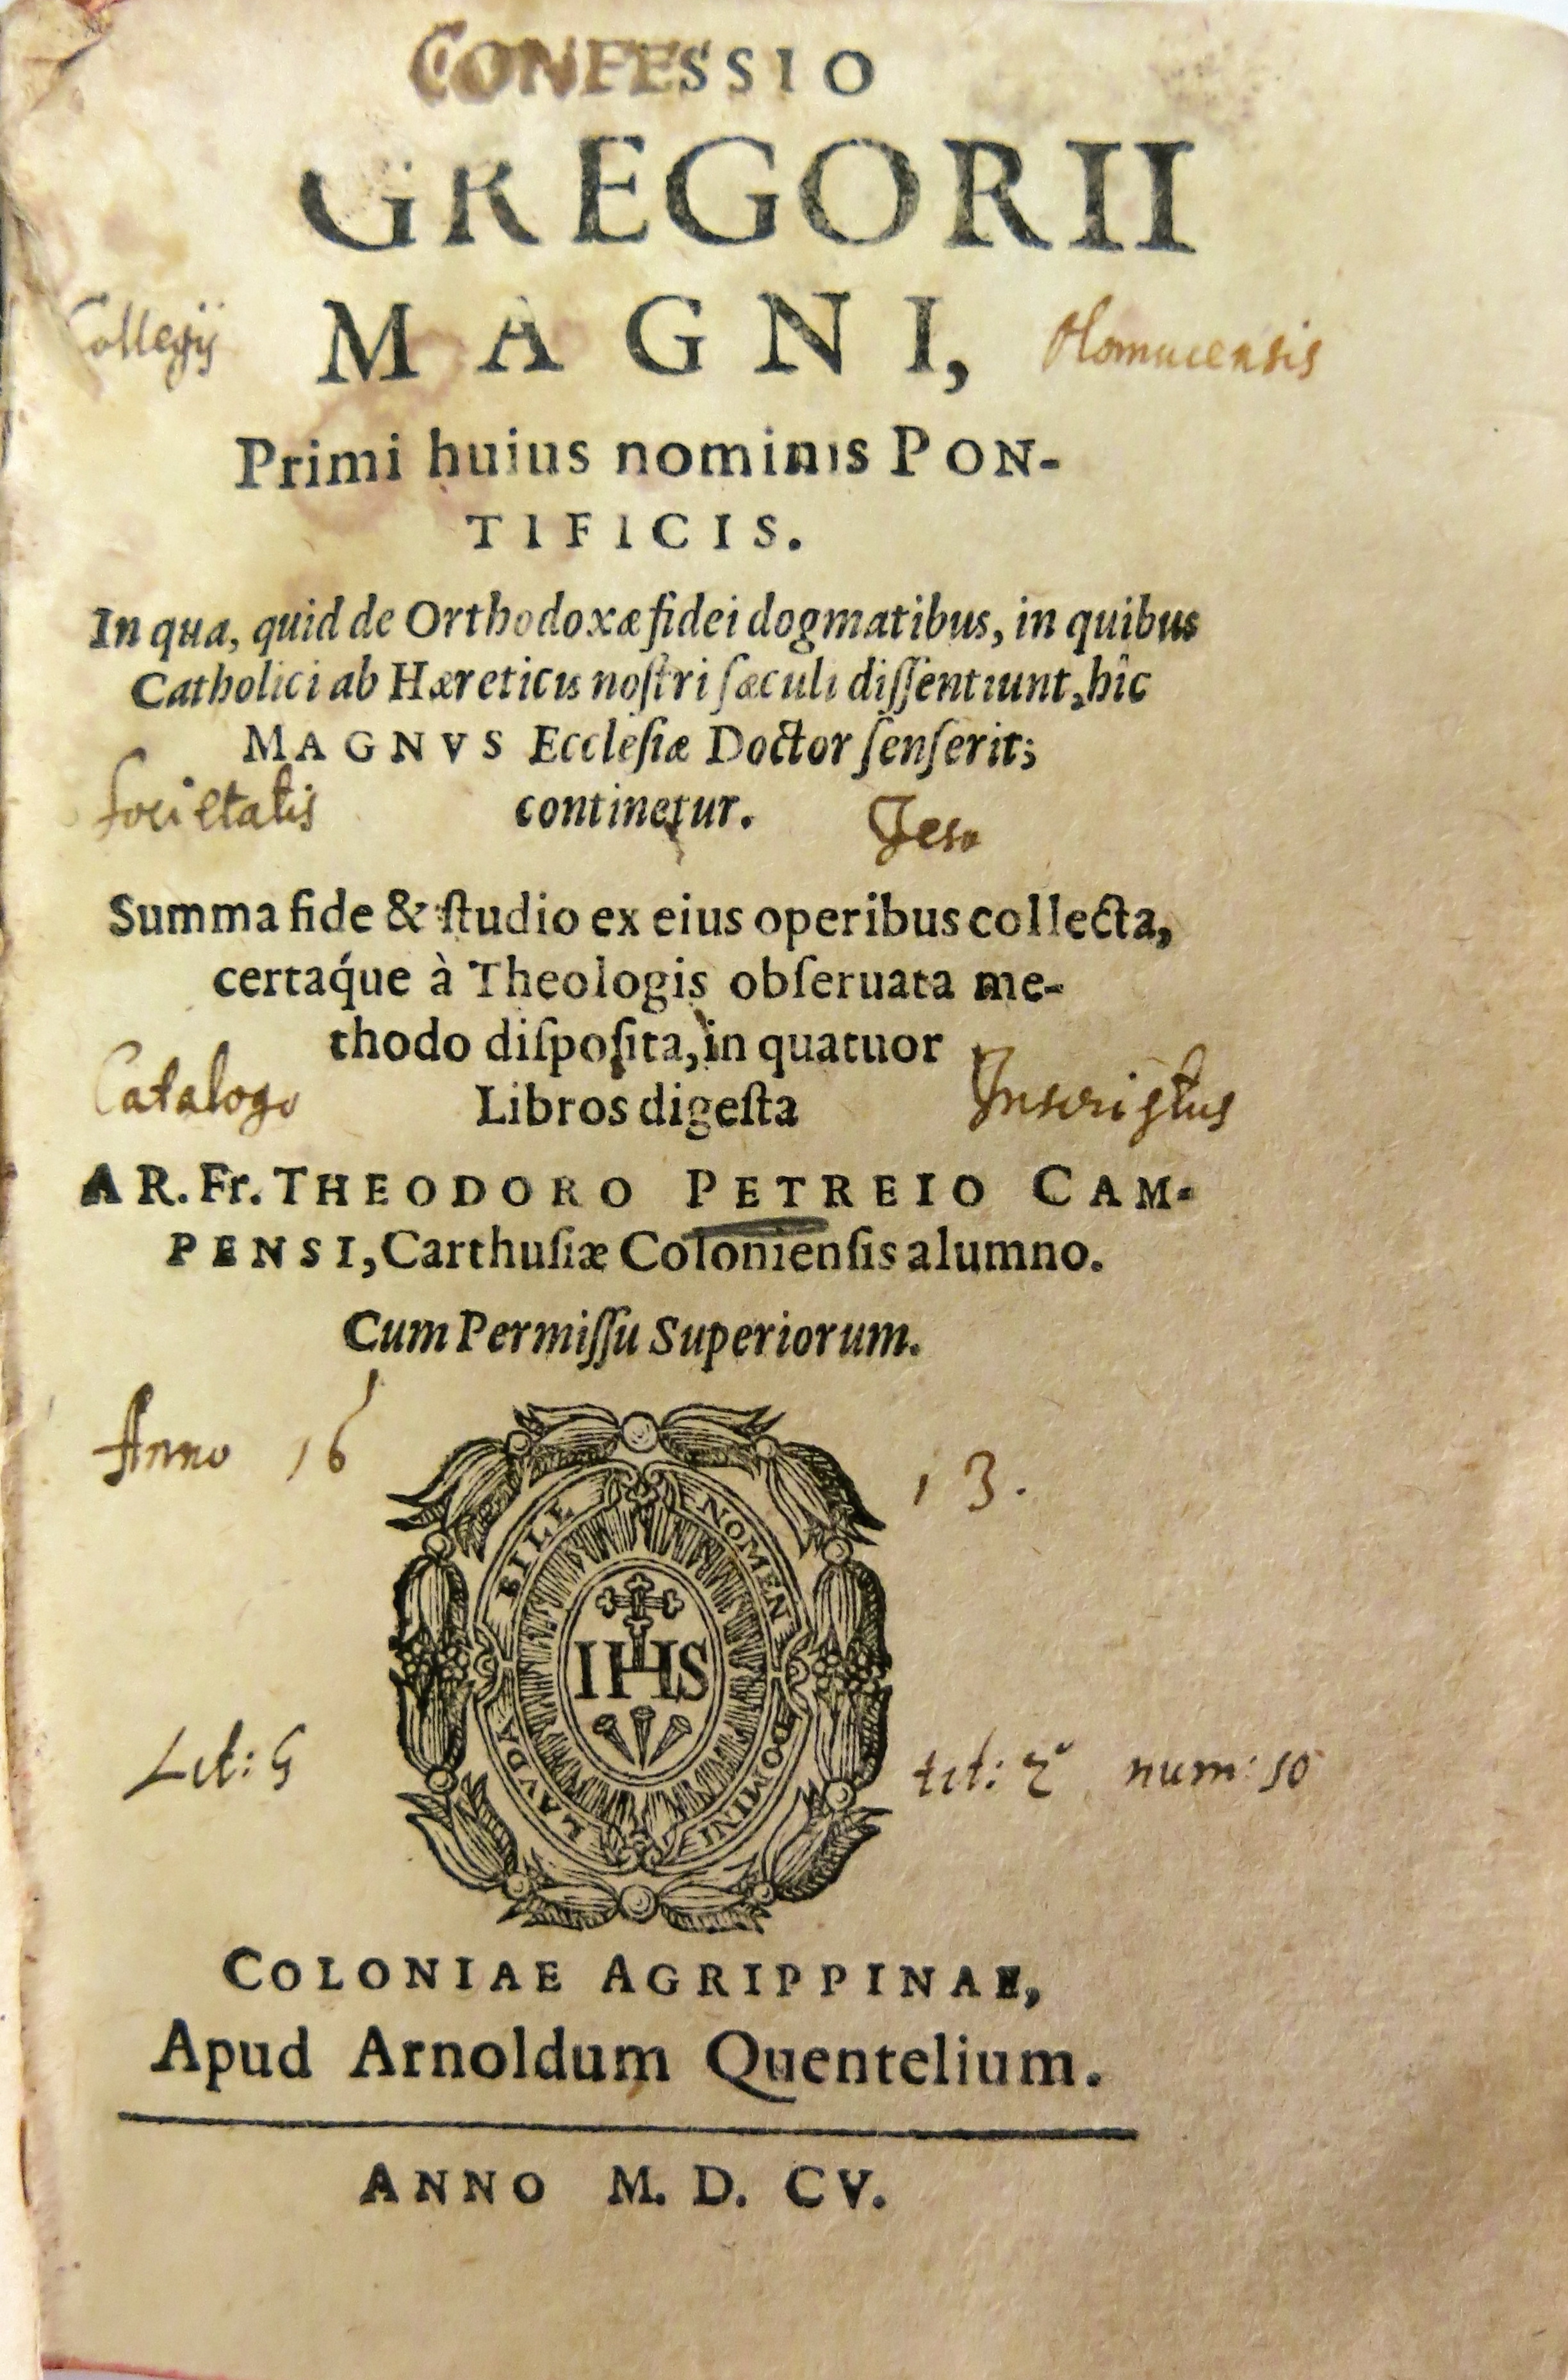 CONFESSIO
GREGORII
Collegij MAGNI, Olomucensis
Primi huius nominis PON-
TIFICIS.
In qua, quid de Orthodoxæ fidei dogmatibus, in quibus
Catholici ab Hæreticis noſtri ſæculi diſſentiunt, hic
MAGNVS Eccleſiæ Doctor ſenſerit;
Societatis continetur. Jesu
Summa fide & ſtudio ex eius operibus collecta,
certaq́ue à Theologis obſeruata me-
thodo diſpoſita, in quatuor
Catalogo Libros digeſta Inscriptus
A R. Fr. THEODORO PETREIO CAM-
PENSI, Carthuſiæ Colonienſis alumno.
Cum Permiſſu Superiorum.
Anno 16 13.
LAVDA BILE NOMEN DOMINI
IHS
Lit: G tit: 2 num: 10
COLONIAE AGRIPPINAE,
Apud Arnoldum Quentelium.
ANNO M. D. CV.